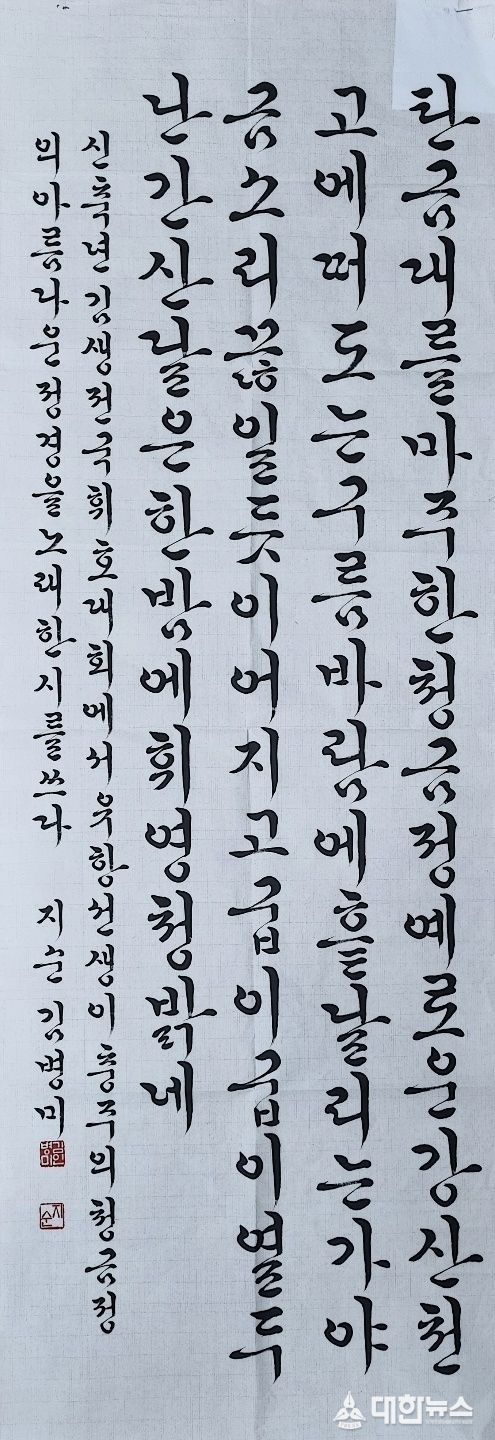 탄금대를마주한청금정예로운강산천
고에떠도는구름바람에흩날리는가야
금소리끊일듯이어지고굽이굽이열두
난간신날은한밤에휘영청밝네
신축년김생전국휘호대회에서우항선생이충주의청금정
의아름다운정경을노래한시를쓰다 지순김병미
지순
대한뉴스